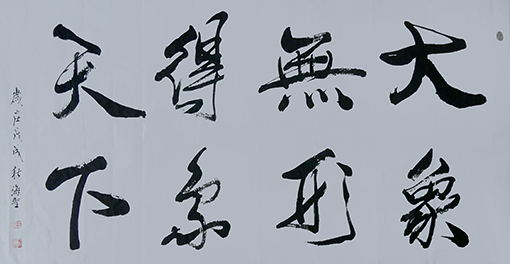 大象
無形
得象
天下
歲在戊戌秋海